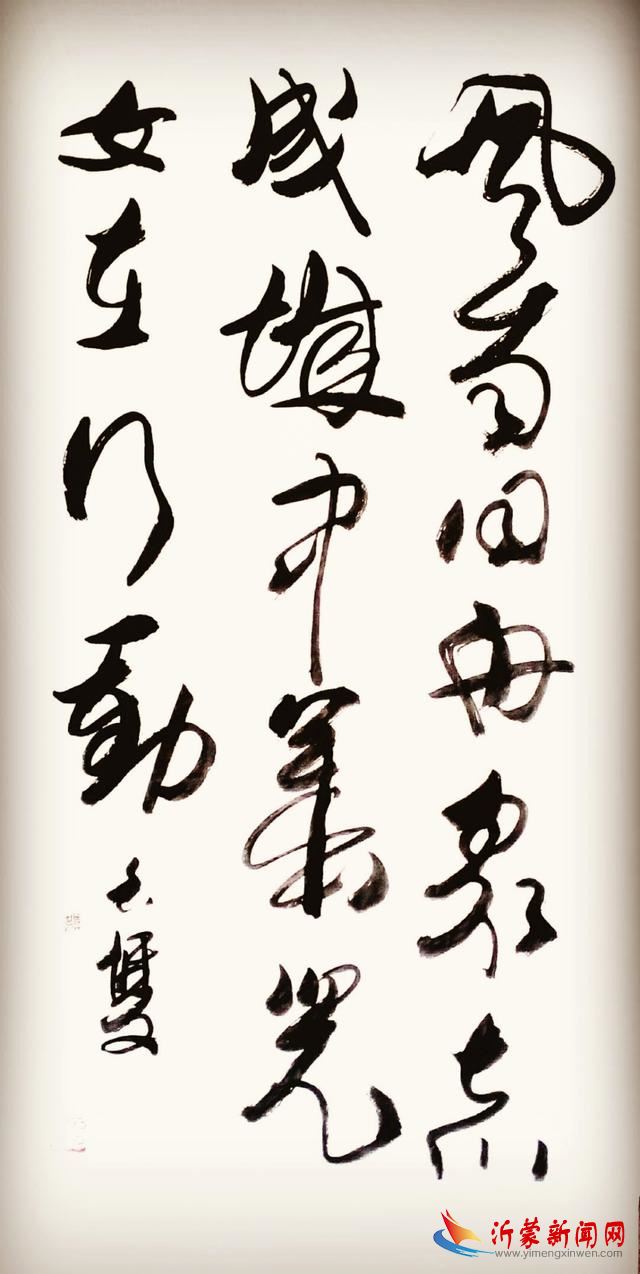 風雨同舟衆志
成城中華兒
女在行動
沂蒙新闻网
www.yimengxinwen.com